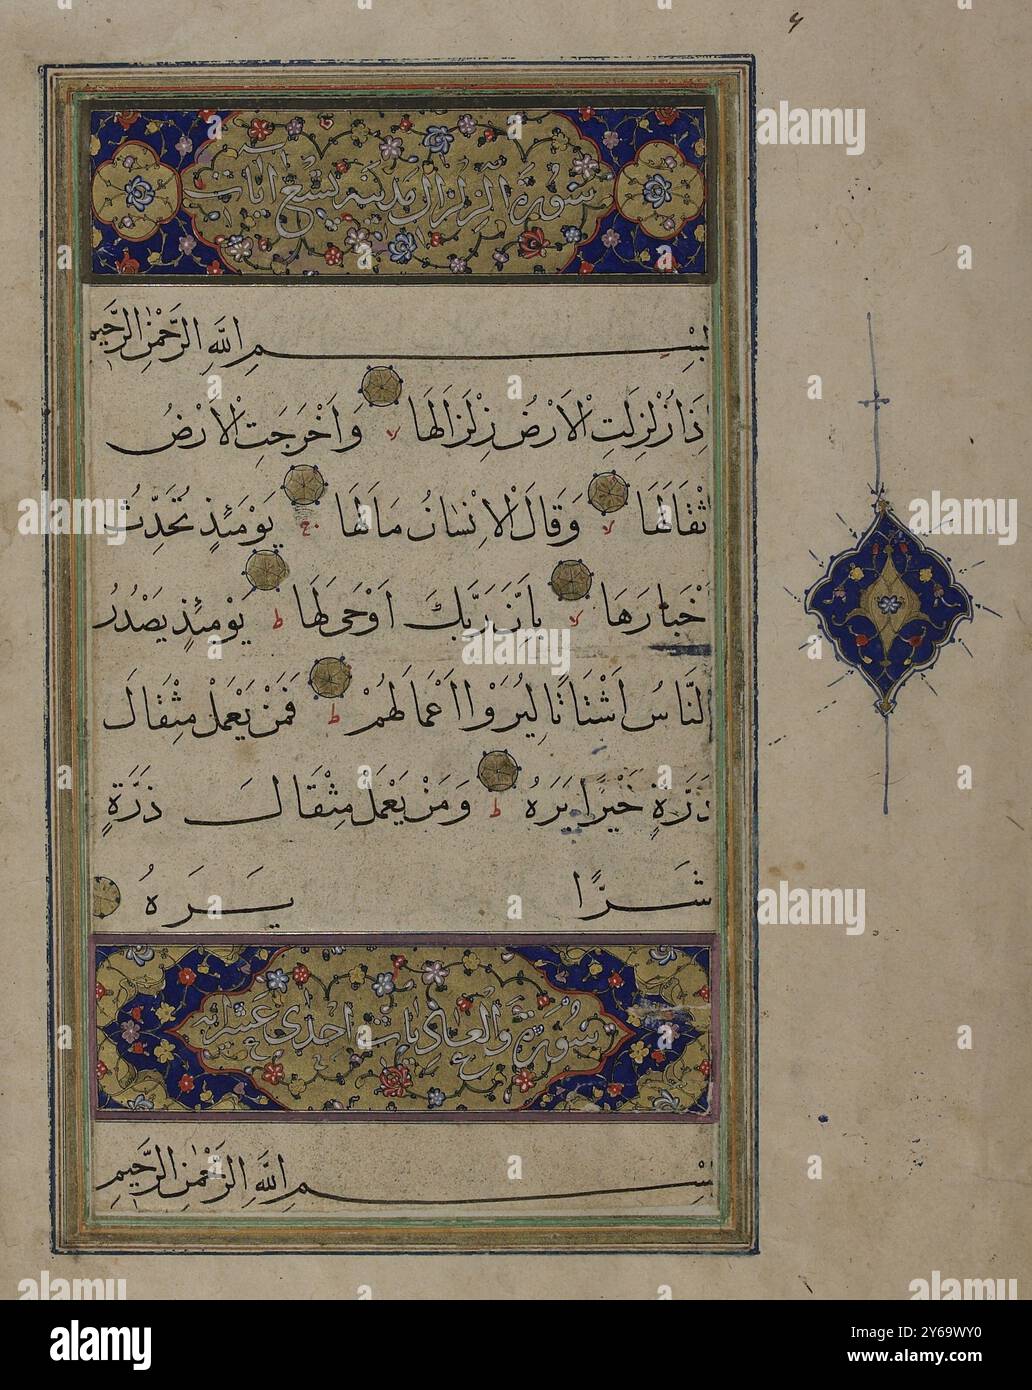 سورة الزلزال مدنية تسع آيات
بِسْمِ اللَّهِ الرَّحْمٰنِ الرَّحِيمِ
ذَا زُلْزِلَتِ الْاَرْضُ زِلْزَالَهَا لا وَاَخْرَجَتِ الْاَرْضُ
ثْقَالَهَا لا وَقَالَ الْاِنْسَانُ مَا لَهَا ج يَوْمَئِذٍ تُحَدِّثُ
خْبَارَهَا لا بِاَنَّ رَبَّكَ اَوْحٰى لَهَا ط يَوْمَئِذٍ يَصْدُرُ
النَّاسُ اَشْتَاتًا لِيُرَوْا اَعْمَالَهُمْ ط فَمَنْ يَعْمَلْ مِثْقَالَ
ذَرَّةٍ خَيْرًا يَرَهُ ط وَمَنْ يَعْمَلْ مِثْقَالَ ذَرَّةٍ
شَرًّا يَرَهُ
سورة والعاديات احدى عشر آية
بِسْمِ اللَّهِ الرَّحْمٰنِ الرَّحِيمِ
alamy
Image ID: 2Y69WY0
www.alamy.com